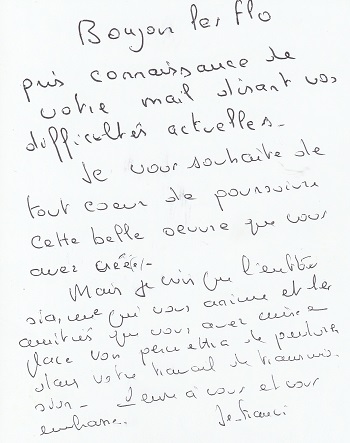 Boujon les flo
pris connaissance de
votre mail disant vos
difficultés actuelles.
Je vous souhaite de
tout coeur de poursuivre
cette belle oeuvre que vous
avez créée.
Mais je crois que l'enthou
siasme qui vous anime et les
amitiés que vous avez mise en
place vous permettra de perdurer
dans votre travail de transmis-
sion. Je pense à vous et vous
embrasse.